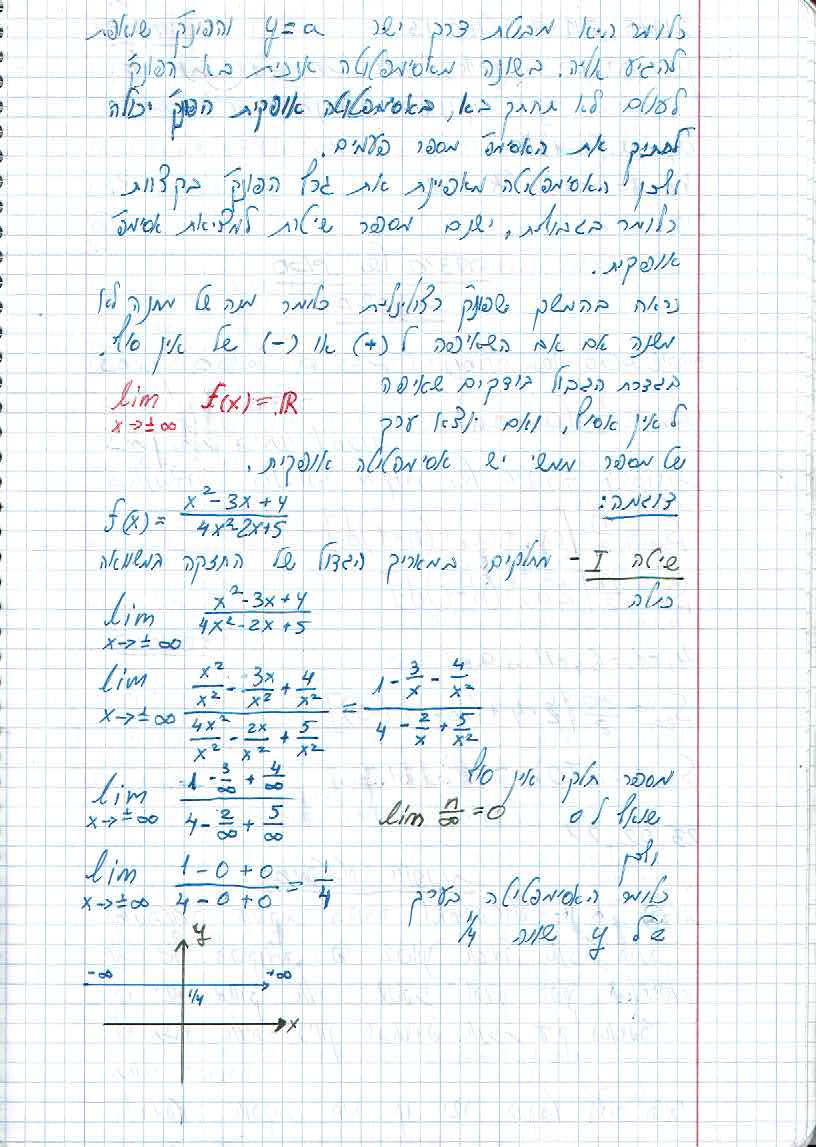 כלומר היא מבוטת דרך ישר y=a והפונק' שואפת
להגיע אליה. בשונה מאסימפטוטה אנכית בא הפונק'
לעולם לא תחתך בא, באסימפטוטה אופקית הפונק' יכולה
לחתוך את האסימפ' מספר פעמים.
ולכן האסימפטוטה מאפיינת את גרף הפונק' בקצוות
כלומר בגבולות, ישנם מספר שיטות למציאת אסימפ'
אופקית.
נראה בהמשך שפונק' רציונלית כלומר מנה של מתנה לא
משנה אם אם השאיפה ל (+) או (-) של אין סוף.
בהגדרת הגבול בודקים שאיפה
lim x→±∞ f(x)=ℝ
ל אין אסוף, ואם יוצא ערך
של מספר ממשי יש אסימפטוטה אופקית.
דוגמה:
f(x)= (x²-3x+4)/(4x²-2x+5)
שיטה I - מחלקים במאריך הגדול של החזקה במשוואה
כולה
lim x→±∞ (x²-3x+4)/(4x²-2x+5)
lim x→±∞ (x²/x² - 3x/x² + 4/x²)/(4x²/x² - 2x/x² + 5/x²) = (1 - 3/x - 4/x²)/(4 - 2/x + 5/x²)
מספר חלקי אין סוף
lim x→±∞ (1 - 3/∞ + 4/∞)/(4 - 2/∞ + 5/∞)
שואף ל 0 lim n/∞ = 0
ולכן
lim x→±∞ (1-0+0)/(4-0+0) = 1/4
כלומר האסימפטוטה בערך
של y שווה 1/4
y
-∞ +∞
1/4
x